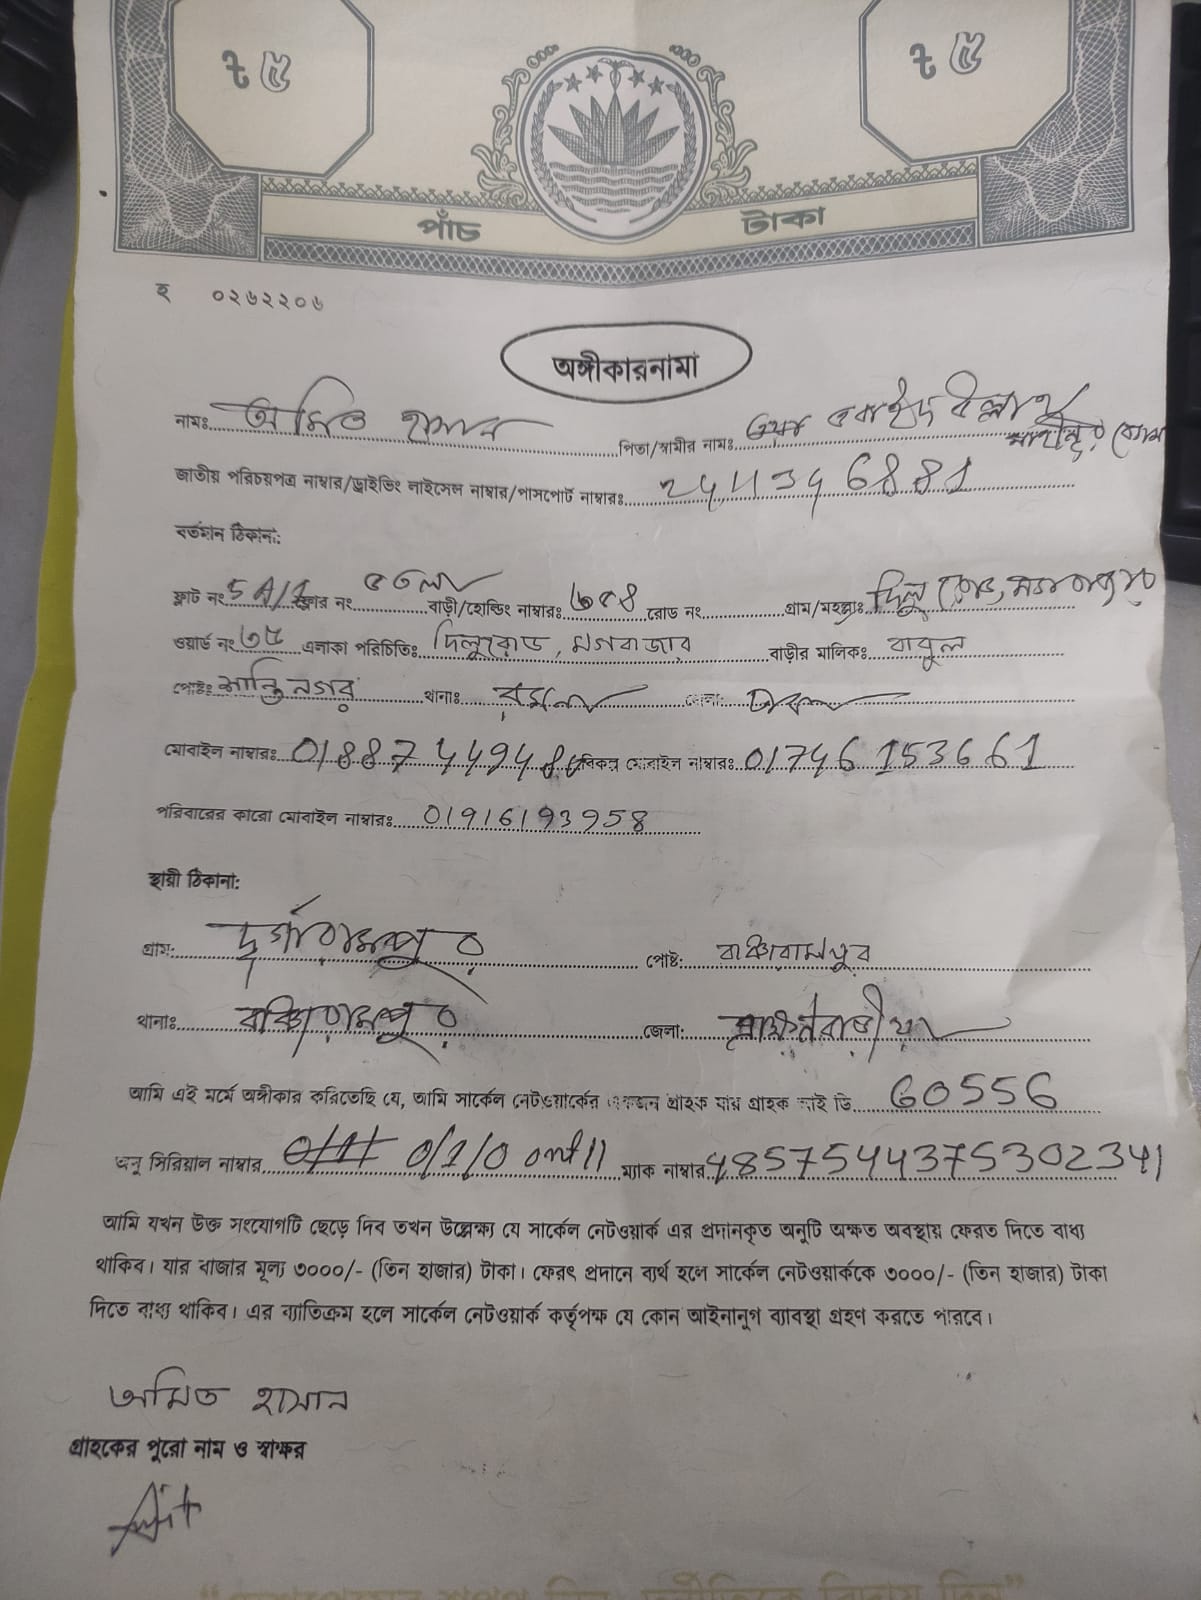 ৳ ৫ ৳ ৫
পাঁচ টাকা
হ ০২৬২২০৬
অঙ্গীকারনামা
নামঃ অমিত হাসান পিতা/স্বামীর নামঃ
জাতীয় পরিচয়পত্র নাম্বার/ড্রাইভিং লাইসেন্স নাম্বার/পাসপোর্ট নাম্বারঃ
বর্তমান ঠিকানা:
ফ্লাট নং 5 A/1 ফ্লোর নং ৫ তলা বাড়ী/হোল্ডিং নাম্বারঃ রোড নং গ্রাম/মহল্লাঃ দিলু রোড, মগবাজার
ওয়ার্ড নং ৩৫ এলাকা পরিচিতিঃ দিলুরোড, মগবাজার বাড়ীর মালিকঃ বাবুল
পোষ্টঃ শান্তিনগর থানাঃ রমনা জেলা: ঢাকা
মোবাইল নাম্বারঃ বিকল্প মোবাইল নাম্বারঃ 01746153661
পরিবারের কারো মোবাইল নাম্বারঃ 01916193958
স্থায়ী ঠিকানা:
গ্রাম: দুর্গারামপুর পোষ্ট: বাঞ্চারামপুর
থানাঃ বাঞ্চারামপুর জেলা: ব্রাহ্মনবাড়ীয়া
আমি এই মর্মে অঙ্গীকার করিতেছি যে, আমি সার্কেল নেটওয়ার্কের একজন গ্রাহক যার গ্রাহক আই ডি 60556
অনু সিরিয়াল নাম্বার 0/1/0 ম্যাক নাম্বার 4857544375302341
আমি যখন উক্ত সংযোগটি ছেড়ে দিব তখন উল্লেক্ষ্য যে সার্কেল নেটওয়ার্ক এর প্রদানকৃত অনুটি অক্ষত অবস্থায় ফেরত দিতে বাধ্য
থাকিব। যার বাজার মূল্য ৩০০০/- (তিন হাজার) টাকা। ফেরৎ প্রদানে ব্যর্থ হলে সার্কেল নেটওয়ার্ককে ৩০০০/- (তিন হাজার) টাকা
দিতে বাধ্য থাকিব। এর ব্যাতিক্রম হলে সার্কেল নেটওয়ার্ক কর্তৃপক্ষ যে কোন আইনানুগ ব্যাবস্থা গ্রহণ করতে পারবে।
অমিত হাসান
গ্রাহকের পুরো নাম ও স্বাক্ষর